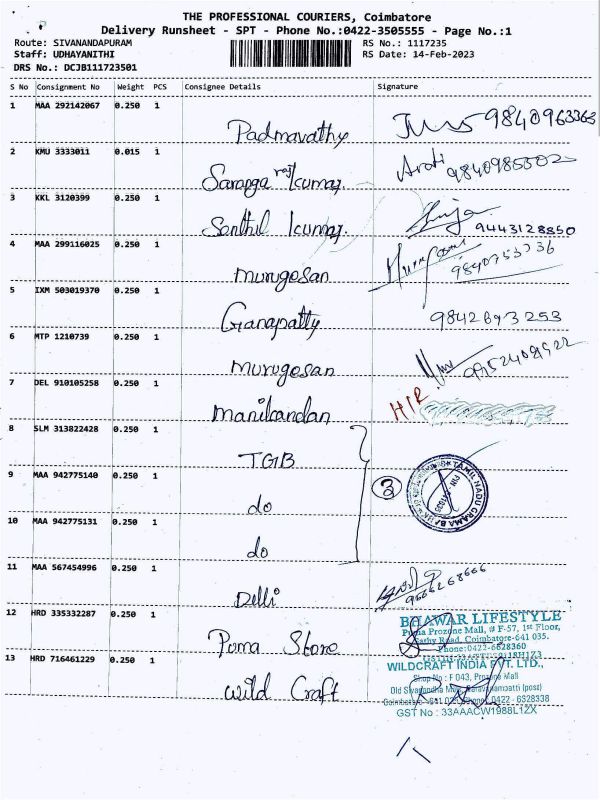 THE PROFESSIONAL COURIERS, Coimbatore
Delivery Runsheet - SPT - Phone No.:0422-3505555 - Page No.:1
Route: SIVANANDAPURAM
Staff: UDHAYANITHI
DRS No.: DCJB111723501
RS No.: 1117235
RS Date: 14-Feb-2023
S No Consignment No Weight PCS Consignee Details Signature
1 MAA 292142067 0.250 1
Padmavathy 9840963363
2 KMU 3333011 0.015 1
Saranga raj kumar. Arati
3 KKL 3120399 0.250 1
Senthil kumar. 9443128850
4 MAA 299116025 0.250 1
murugesan Murugesan
5 IXM 503019370 0.250 1
Ganapatty 9842693253
6 MTP 1210739 0.250 1
murugesan
7 DEL 910105258 0.250 1
manikandan H/R
8 SLM 313822428 0.250 1
TGB
9 MAA 942775140 0.250 1
do 3
TAMIL NADU GRAMA BANK
10 MAA 942775131 0.250 1
do
11 MAA 567454996 0.250 1
Dilli 9666268666
12 HRD 335332287 0.250 1
Puma Store
BHAWAR LIFESTYLE
Puma Prozone Mall, # F-57, 1st Floor,
Sathy Road, Coimbatore-641 035.
Phone:0422-6628360
13 HRD 716461229 0.250 1
Wild Craft
WILDCRAFT INDIA PVT. LTD.,
Shop No : F 043, Prozone Mall
Old Sivanandha Mills, Saravanampatti (post)
Coimbatore - 641 035. Phone: 0422 - 6328338
GST No : 33AAACW1988L1ZX